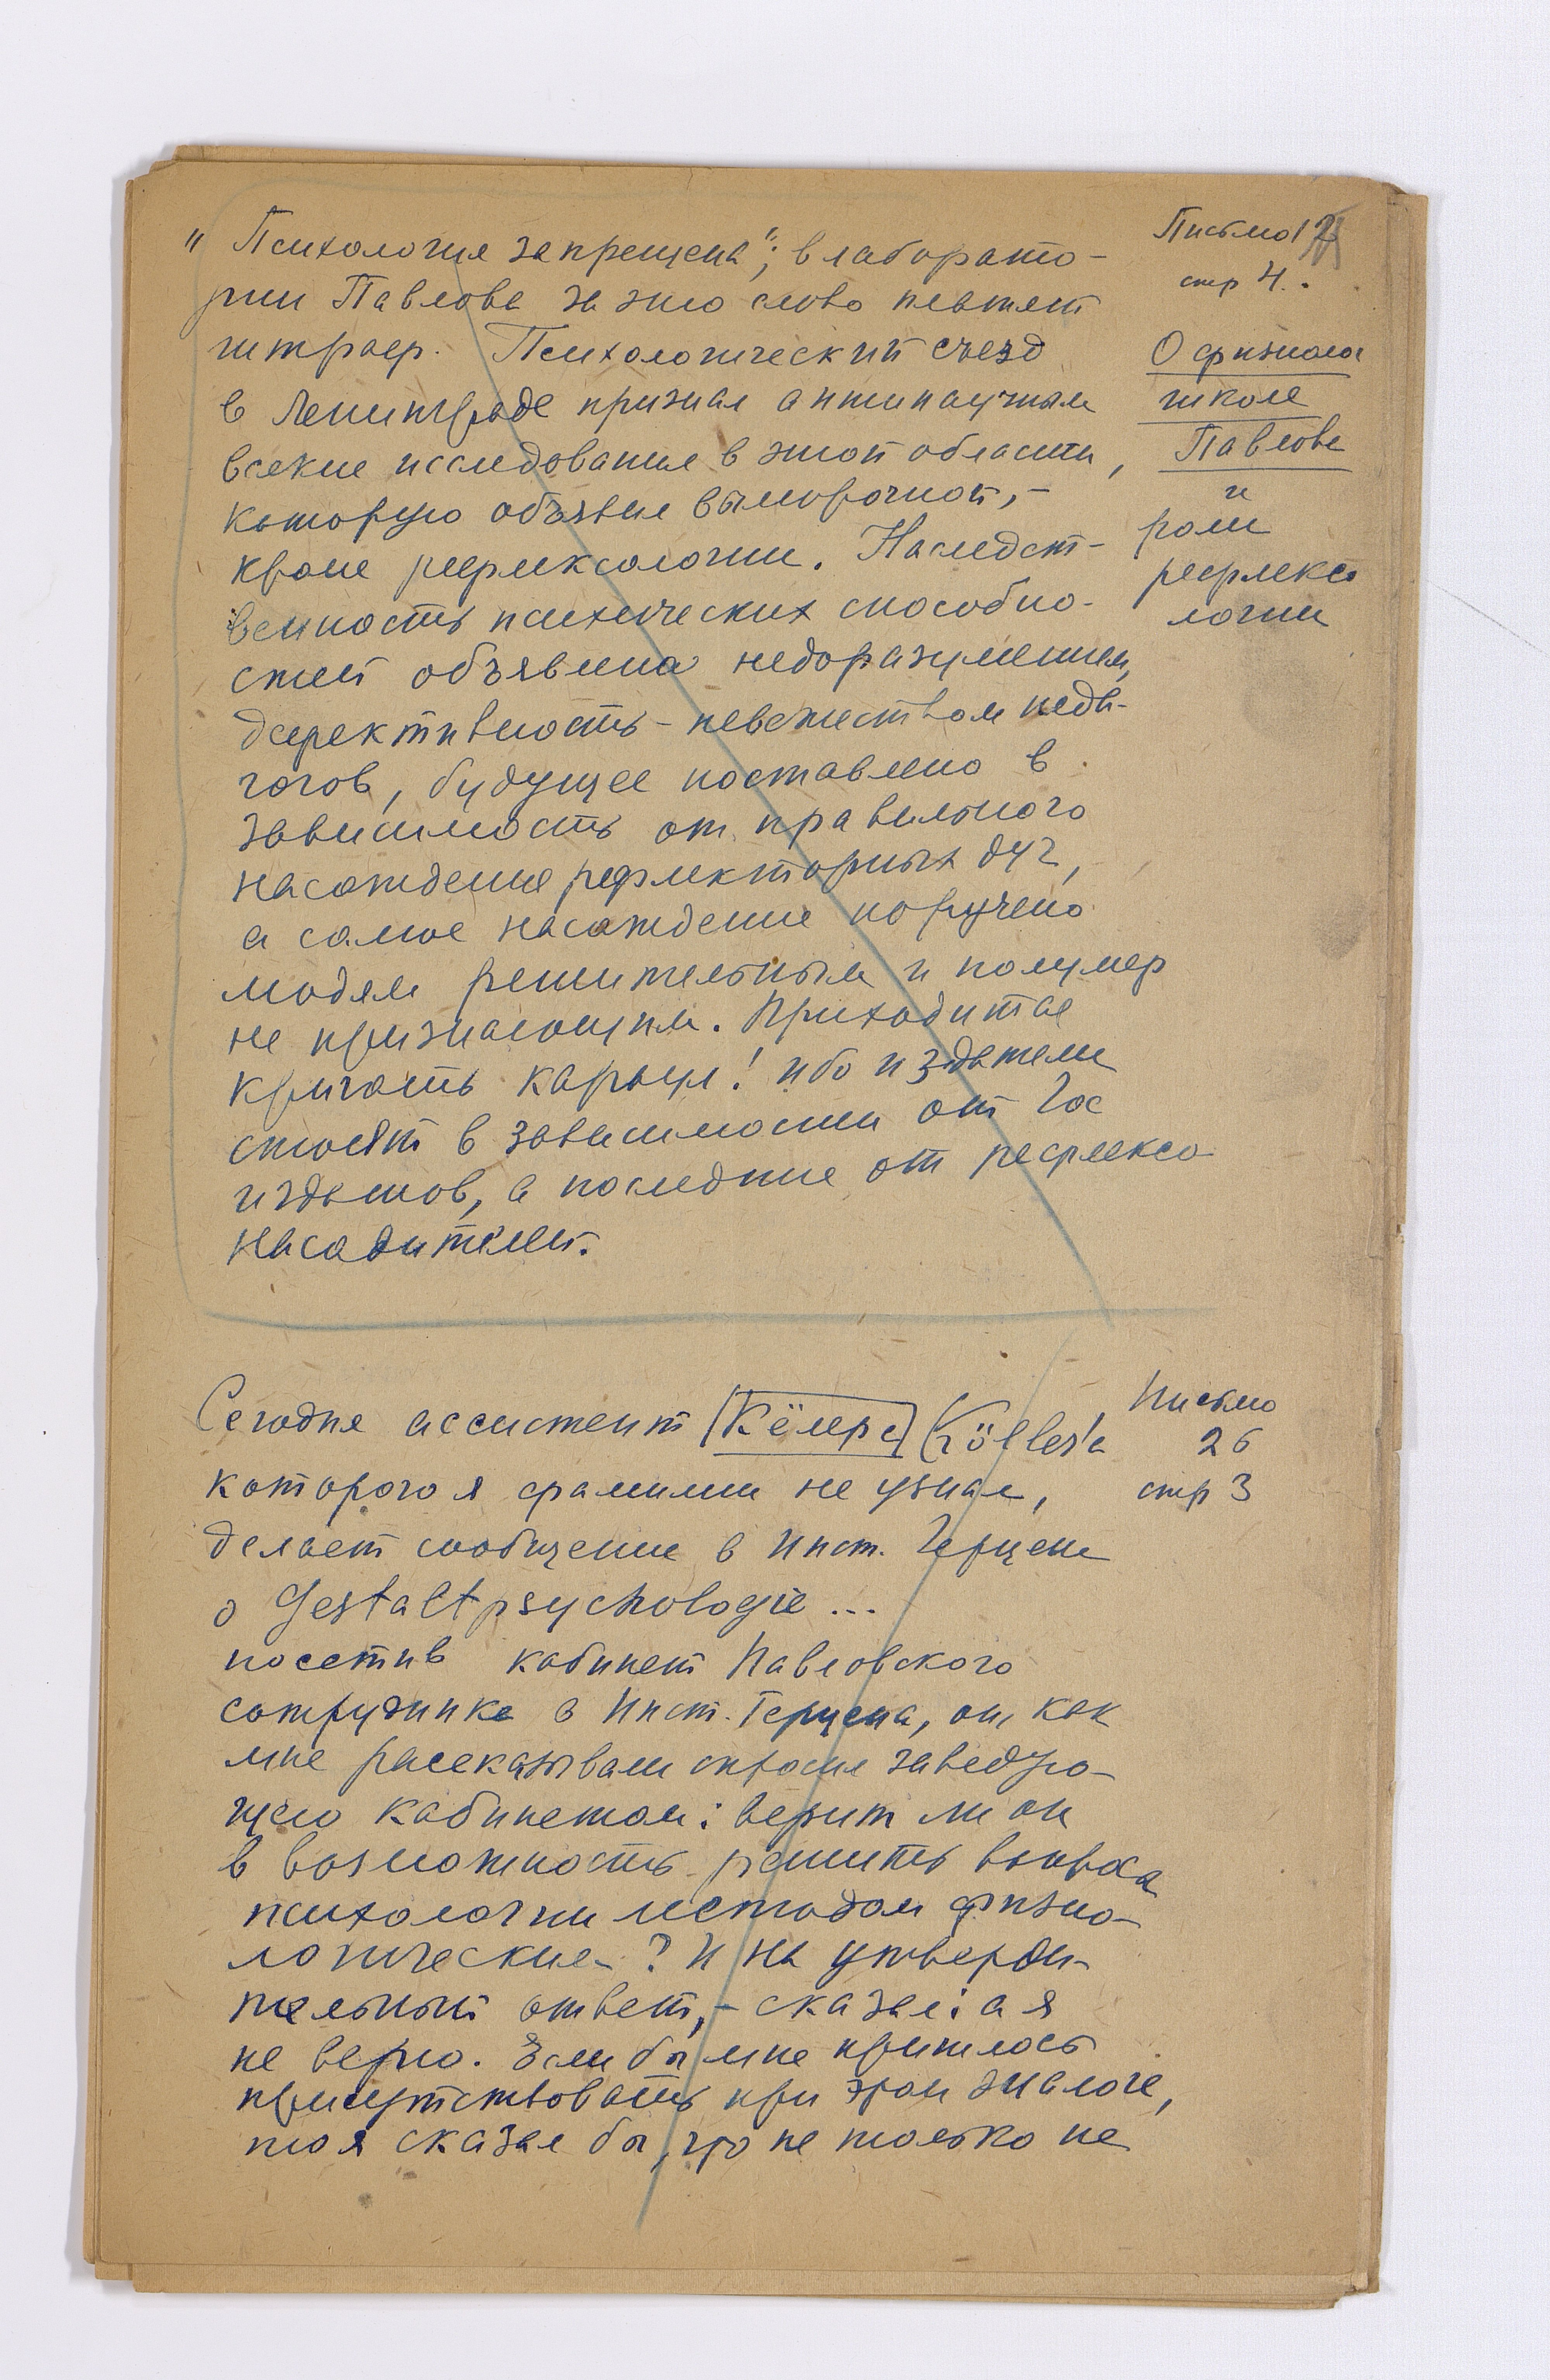 "Психология запрещена"; в лаборато-
рии Павлова за это слово платят
штраф. Психологический съезд
в Ленинграде признал антинаучным
всякие исследования в этой области,
которую объявил выморочной, -
кроме рефлексологии. Наследст-
венность психических способно-
стей объявлена недоразумением,
дефективность - невежеством педа-
гогов, будущее поставлено в
зависимость от правильного
насаждения рефлекторных дуг,
а самое насаждение поручено
людям решительным и полумер
не признающим. Приходится
кричать караул! ибо издатели
стоят в зависимости от Гос
издатов, а последние от рефлексо
насадителей.
Письмо 12
стр 4.
О физиолог
школе
Павлова
и
роли
рефлексо
логии
Сегодня ассистент [Кёлера] (Köhler'а
которого я фамилии не узнал,
делает сообщение в Инст. Герцена
о Gestaltpsychologie ...
посетив кабинет Павловского
сотрудника в Инст. Герцена, он, как
мне рассказывали спросил заведую-
щего кабинетом: верит ли он
в возможность решить вопросы
психологии методом физио-
логическим? И на утверди-
тельный ответ, - сказал: а я
не верю. Если бы мне пришлось
присутствовать при этом диалоге,
то я сказал бы, что не только не
Письмо
26
стр 3